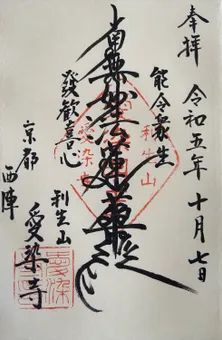 奉拝
令和五年十月七日
能令衆生
南無妙法蓮華経
發歡喜心
利生山
愛染寺
京都
西陣
利生山
愛染寺